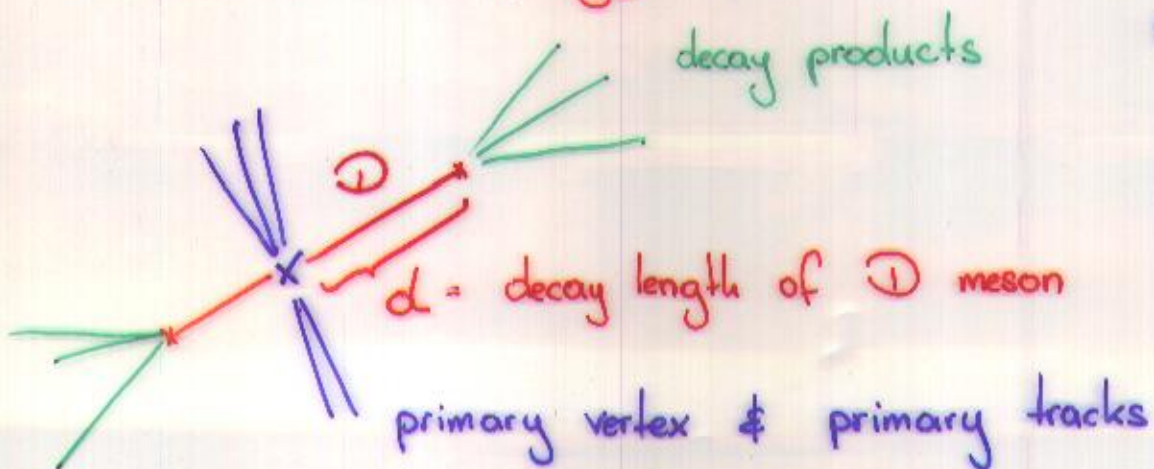 decay products
D
d = decay length of D meson
primary vertex & primary tracks